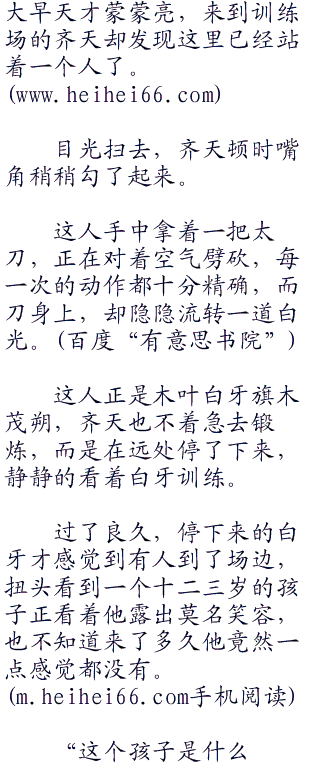 大早天才蒙蒙亮，来到训练
场的齐天却发现这里已经站
着一个人了。
(www.heihei66.com)
目光扫去，齐天顿时嘴
角稍稍勾了起来。
这人手中拿着一把太
刀，正在对着空气劈砍，每
一次的动作都十分精确，而
刀身上，却隐隐流转一道白
光。(百度“有意思书院”)
这人正是木叶白牙旗木
茂朔，齐天也不着急去锻
炼，而是在远处停了下来，
静静的看着白牙训练。
过了良久，停下来的白
牙才感觉到有人到了场边，
扭头看到一个十二三岁的孩
子正看着他露出莫名笑容，
也不知道来了多久他竟然一
点感觉都没有。
(m.heihei66.com手机阅读)
“这个孩子是什么